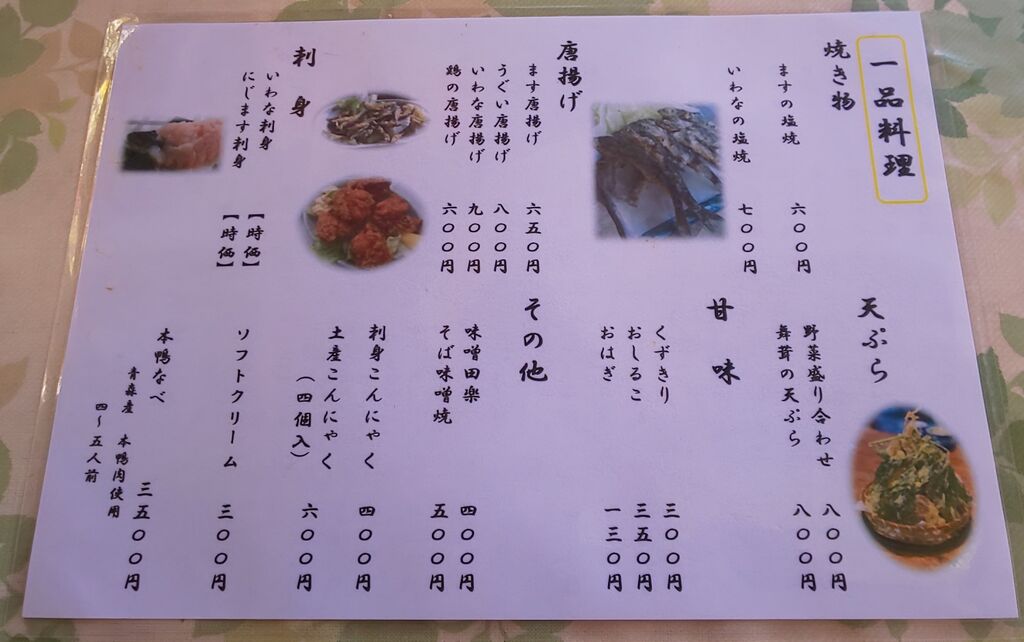 一品料理
焼き物
ますの塩焼 六〇〇円
いわなの塩焼 七〇〇円
唐揚げ
ます唐揚げ 六五〇円
うぐい唐揚げ 八〇〇円
いわな唐揚げ 九〇〇円
鶏の唐揚げ 六〇〇円
刺身
いわな刺身 【時価】
にじます刺身 【時価】
天ぷら
野菜盛り合わせ 八〇〇円
舞茸の天ぷら 八〇〇円
甘味
くずきり 三〇〇円
おしるこ 三五〇円
おはぎ 一三〇円
その他
味噌田楽 四〇〇円
そば味噌焼 五〇〇円
刺身こんにゃく 四〇〇円
土産こんにゃく 六〇〇円
(四個入)
ソフトクリーム 三〇〇円
本鴨なべ 三五〇〇円
青森産 本鴨肉使用
四~五人前